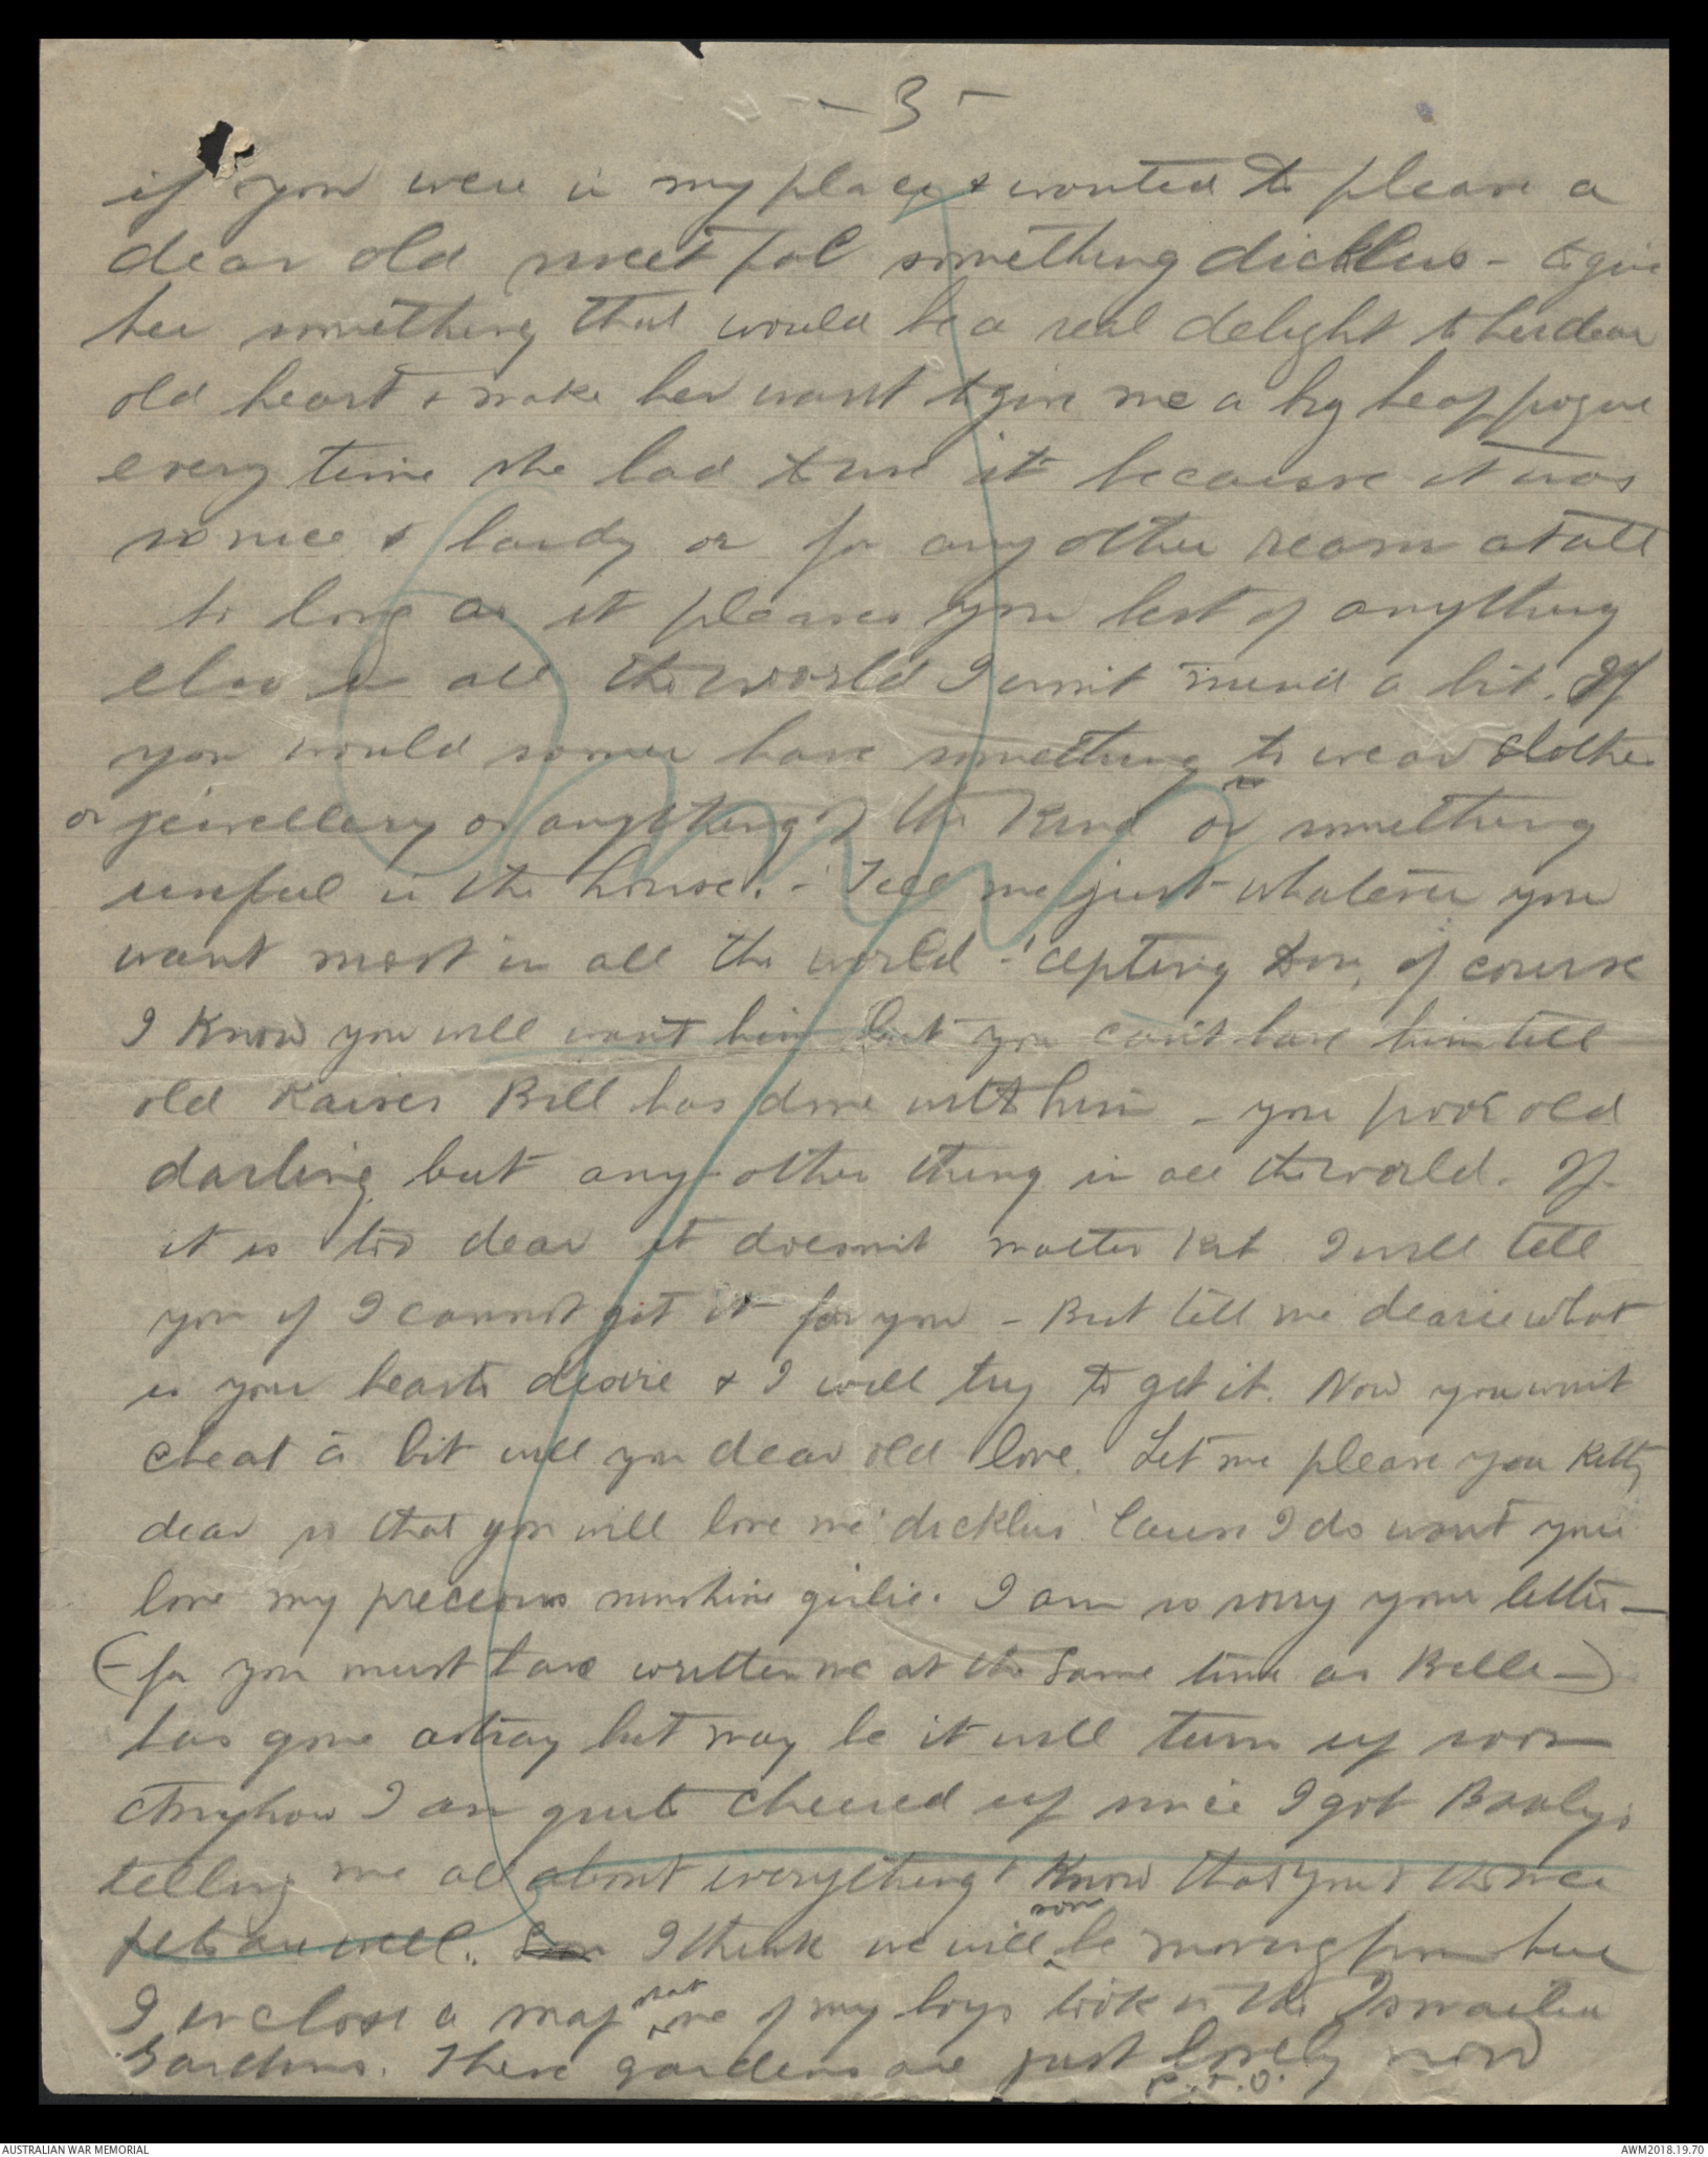 - 3 -
if you were in my place & wanted to please a
dear old sweet pal something dicklus - to give
her something that would be a real delight to her dear
old heart & make her want to give me a big heap pogue
every time she had to use it because it was
so nice & handy or for any other reason at all
so long as it pleases you best of anything
else in all the world I won't mind a bit. If
you would sooner have something to wear clothes
or jewellery or anything of the kind or something
useful in the house. - Tell me just whatever you
want most in all the world - 'cepting Don, of course
I know you will want him but you can't have him till
old Kaiser Bill has done with him - you poor old
darling but any other thing in all the world. If
it is too dear it doesn't matter Kit I will tell
you if I cannot get it for you - But tell me dearie what
is your hearts desire & I will try to get it. Now you won't
cheat a bit will you dear old love. Let me please you Kitty
dear so that you will love me 'dicklus' 'cause I do want your
love my precious sunshine girlie. I am so sorry your letter -
(- for you must have written me at the same time as Belle -)
has gone astray but may be it will turn up soon
Anyhow I am quite cheered up since I got
telling me all about everything & know that you & the wee
pets are well. I think we will soon be moving from here
I enclose a snap that one of my boys took in the Ismailia
Gardens. These gardens are just lovely now
P.T.O.
AUSTRALIAN WAR MEMORIAL
AWM2018.19.70